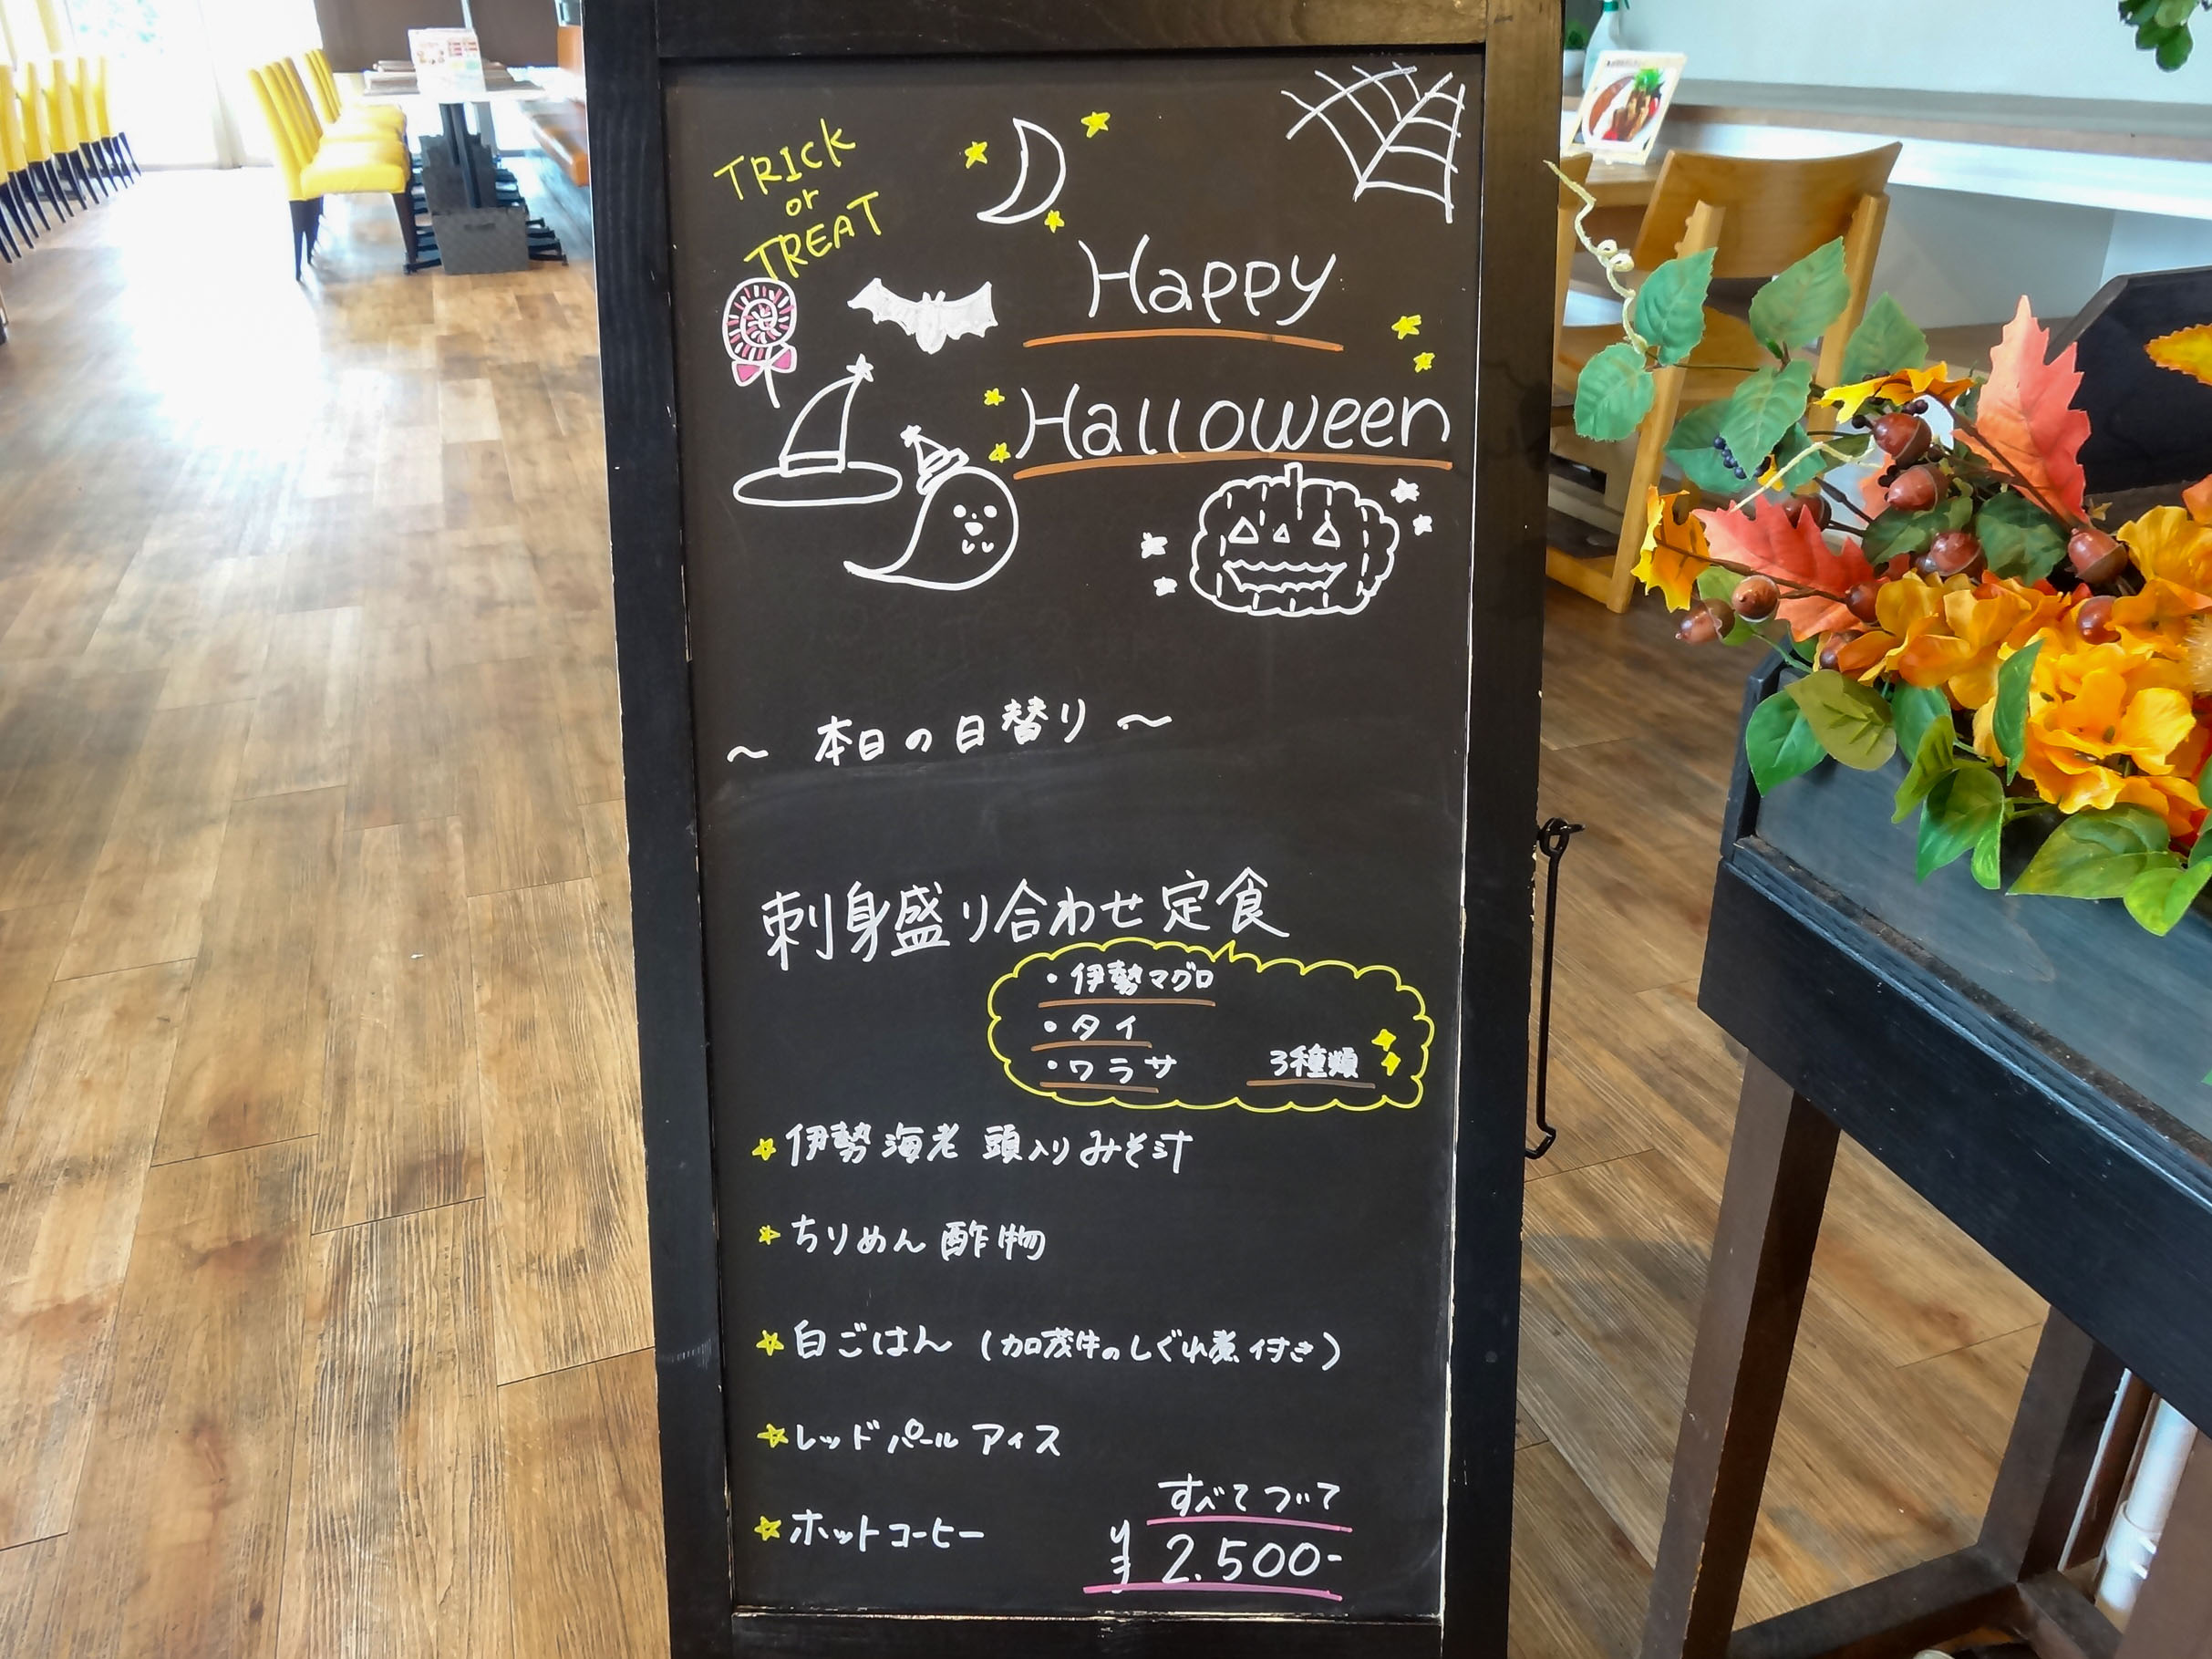 TRICK
or
TREAT
Happy
Halloween
～ 本日の日替り ～
刺身盛り合わせ定食
・伊勢マグロ
・タイ
・ワラサ 3種類
伊勢海老 頭入りみそ汁
ちりめん酢物
白ごはん (加茂牛のしぐれ煮付き)
レッドパール アイス
ホットコーヒー
すべてついて
¥2.500-